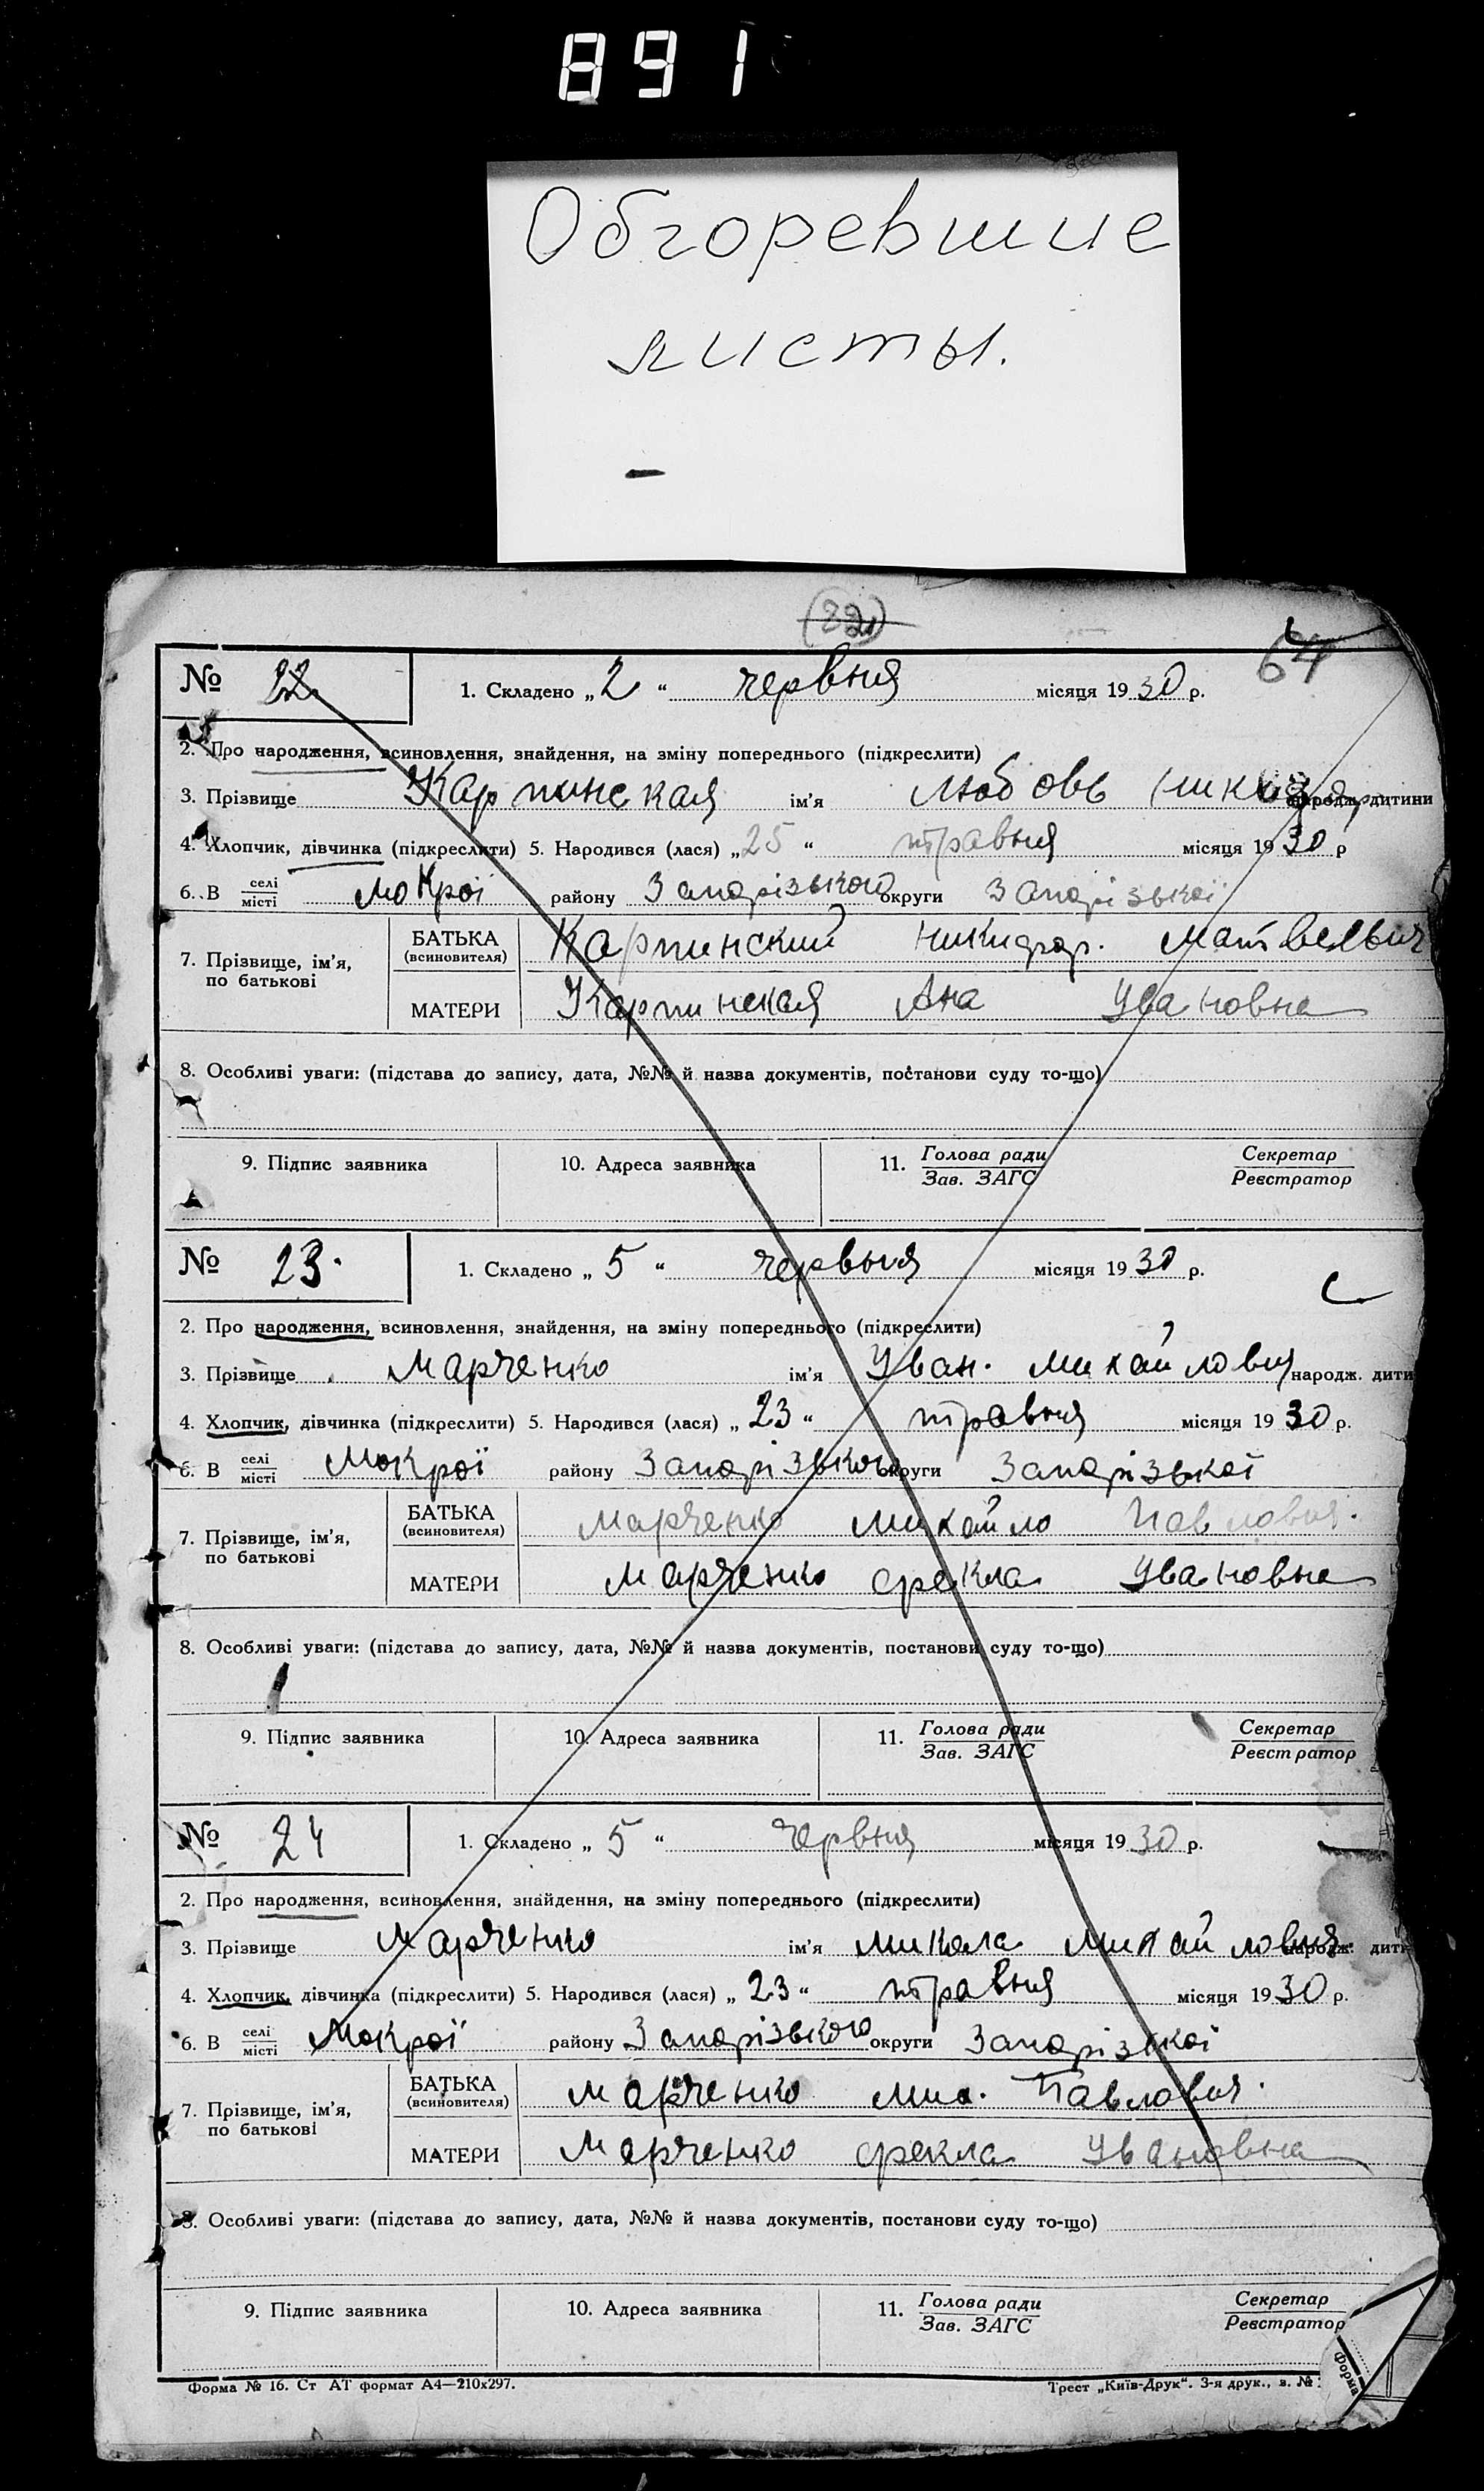 891
Обгоревшие
листы.
(22)
64
№ 22. 1. Складено „2“ червня місяця 1930 р.
2. Про народження, всиновлення, знайдення, на зміну попереднього (підкреслити)
3. Прізвище Карпинская ім'я Любовь народж. дитини
4. Хлопчик, дівчинка (підкреслити) 5. Народився (лася) „25“ травня місяця 1930 р
6. В селі/місті Мокрої району Запорізького округи Запорізької
7. Прізвище, ім'я, по батькові
БАТЬКА (всиновителя) Карпинский Никифор. Матвеевич
МАТЕРИ Карпинская Ана Ивановна
8. Особливі уваги: (підстава до запису, дата, №№ й назва документів, постанови суду то-що)
9. Підпис заявника 10. Адреса заявника 11. Голова ради/Зав. ЗАГС Секретар/Реєстратор
№ 23. 1. Складено „5“ червня місяця 1930 р.
2. Про народження, всиновлення, знайдення, на зміну попереднього (підкреслити)
3. Прізвище Марченко ім'я Иван. Михайлович народж. дити
4. Хлопчик, дівчинка (підкреслити) 5. Народився (лася) „23“ травня місяця 1930 р.
6. В селі/місті Мокрої району Запорізького округи Запорізької
7. Прізвище, ім'я, по батькові
БАТЬКА (всиновителя) Марченко Михайло Павлович.
МАТЕРИ Марченко Фекла Ивановна
8. Особливі уваги: (підстава до запису, дата, №№ й назва документів, постанови суду то-що)
9. Підпис заявника 10. Адреса заявника 11. Голова ради/Зав. ЗАГС Секретар/Реєстратор
№ 24 1. Складено „5“ червня місяця 1930 р.
2. Про народження, всиновлення, знайдення, на зміну попереднього (підкреслити)
3. Прізвище Марченко ім'я Микола Михайлович. народж. дити
4. Хлопчик, дівчинка (підкреслити) 5. Народився (лася) „23“ травня місяця 1930 р.
6. В селі/місті Мокрої району Запорізького округи Запорізької
7. Прізвище, ім'я, по батькові
БАТЬКА (всиновителя) Марченко Мих. Павлович.
МАТЕРИ Марченко Фекла Ивановна
8. Особливі уваги: (підстава до запису, дата, №№ й назва документів, постанови суду то-що)
9. Підпис заявника 10. Адреса заявника 11. Голова ради/Зав. ЗАГС Секретар/Реєстратор
Форма № 16. Ст АТ формат А4—210х297. Трест „Київ-Друк“. 3-я друк., з. №
Форма